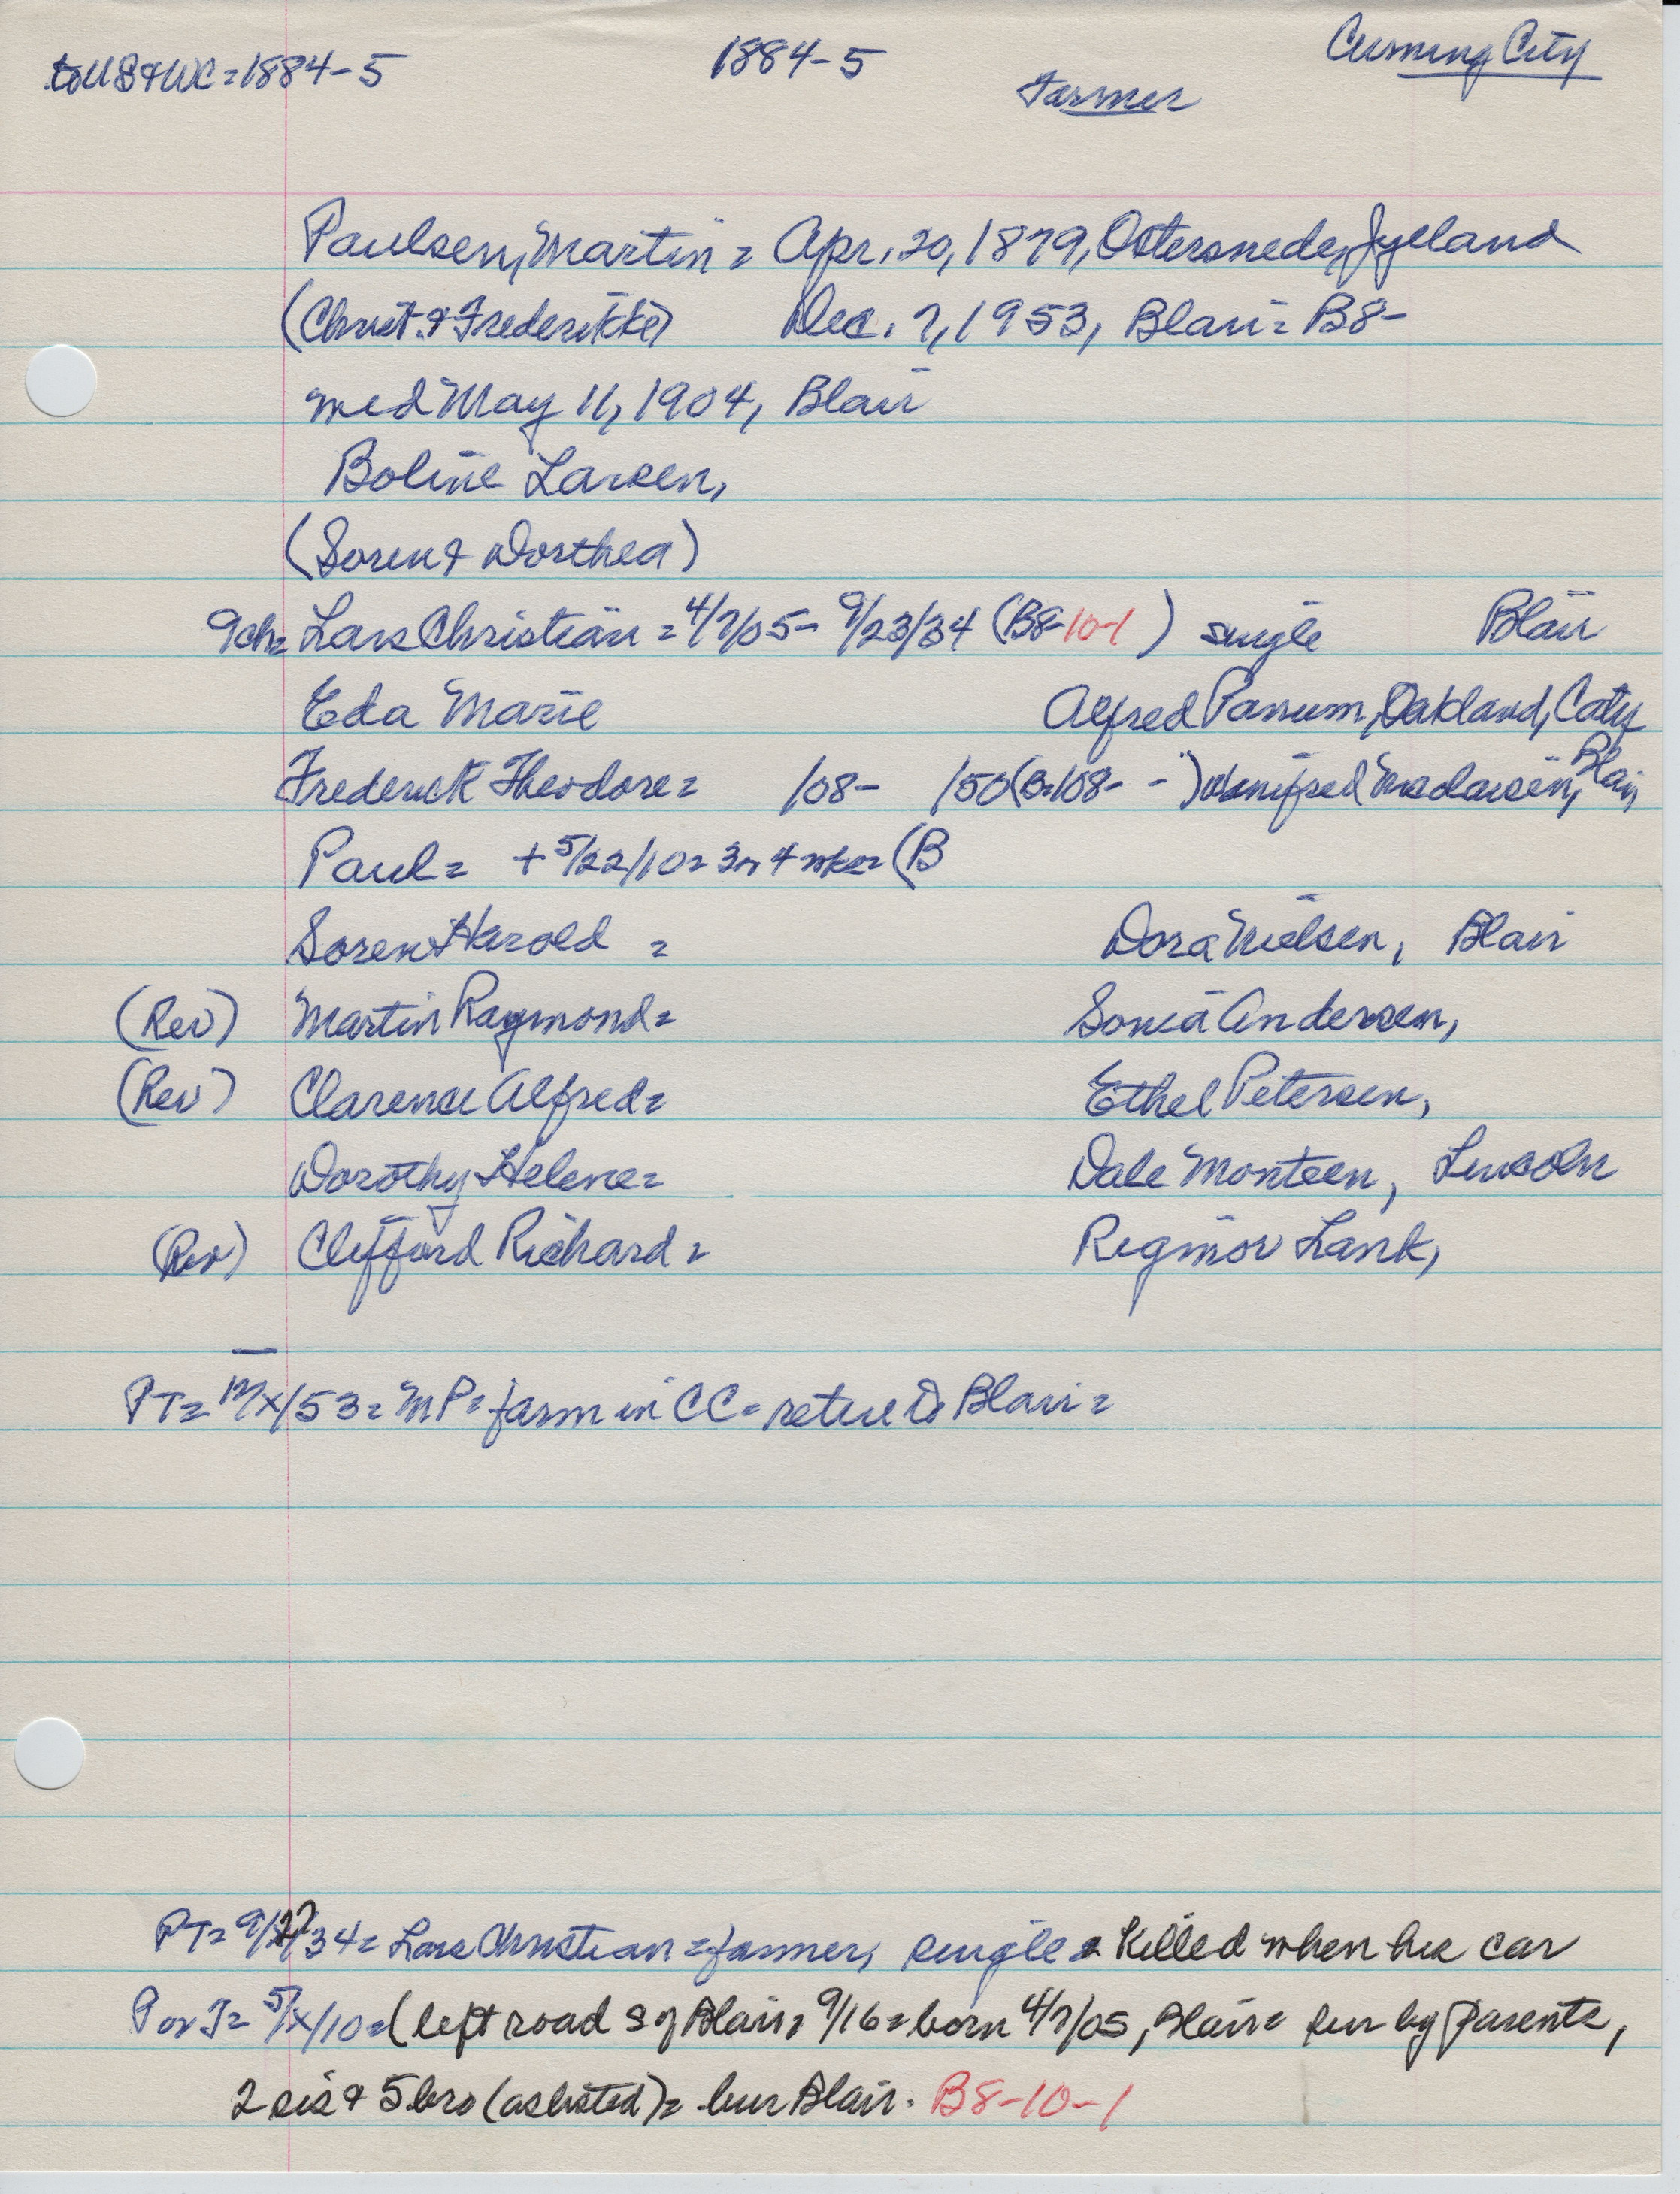 to US & WC = 1884-5 1884-5 Farmer Cuming City
Paulsen, Martin = Apr. 20, 1879, Ostersnede, Jyeland
(Christ. & Frederikke) Dec. 7, 1953, Blair = B8-
med May 11, 1904, Blair
Boline Larsen,
(Soren & Dorthea)
9ch= Lars Christian = 4/7/05- 9/23/34 (B8-10-1 ) single Blair
Eda Marie Alfred Panum, Oakland, Calif
Frederick Theodore = /08- /50 (B-108- - ) Winifred Madsen, Blair,
Paul = + 5/22/10 = 3 or 4 wks = (B
Soren Harold = Dora Nielsen, Blair
(Rev) Martin Raymond = Sonia Andersen,
(Rev) Clarence Alfred = Ethel Petersen,
Dorothy Helene = Dale Monteen, Lincoln
(Rev) Clifford Richard = Regmor Lank,
PT = 12/x/53 = MP = farm in CC = retire to Blair =
PT = 9/27/34 = Lars Christian = farmer, single = Killed when his car
P or T = 5/x/10 = (left road S of Blair, 9/16 = born 4/7/05, Blair = sur by parents,
2 sis & 5 bro (as listed) = bur Blair. B8-10-1